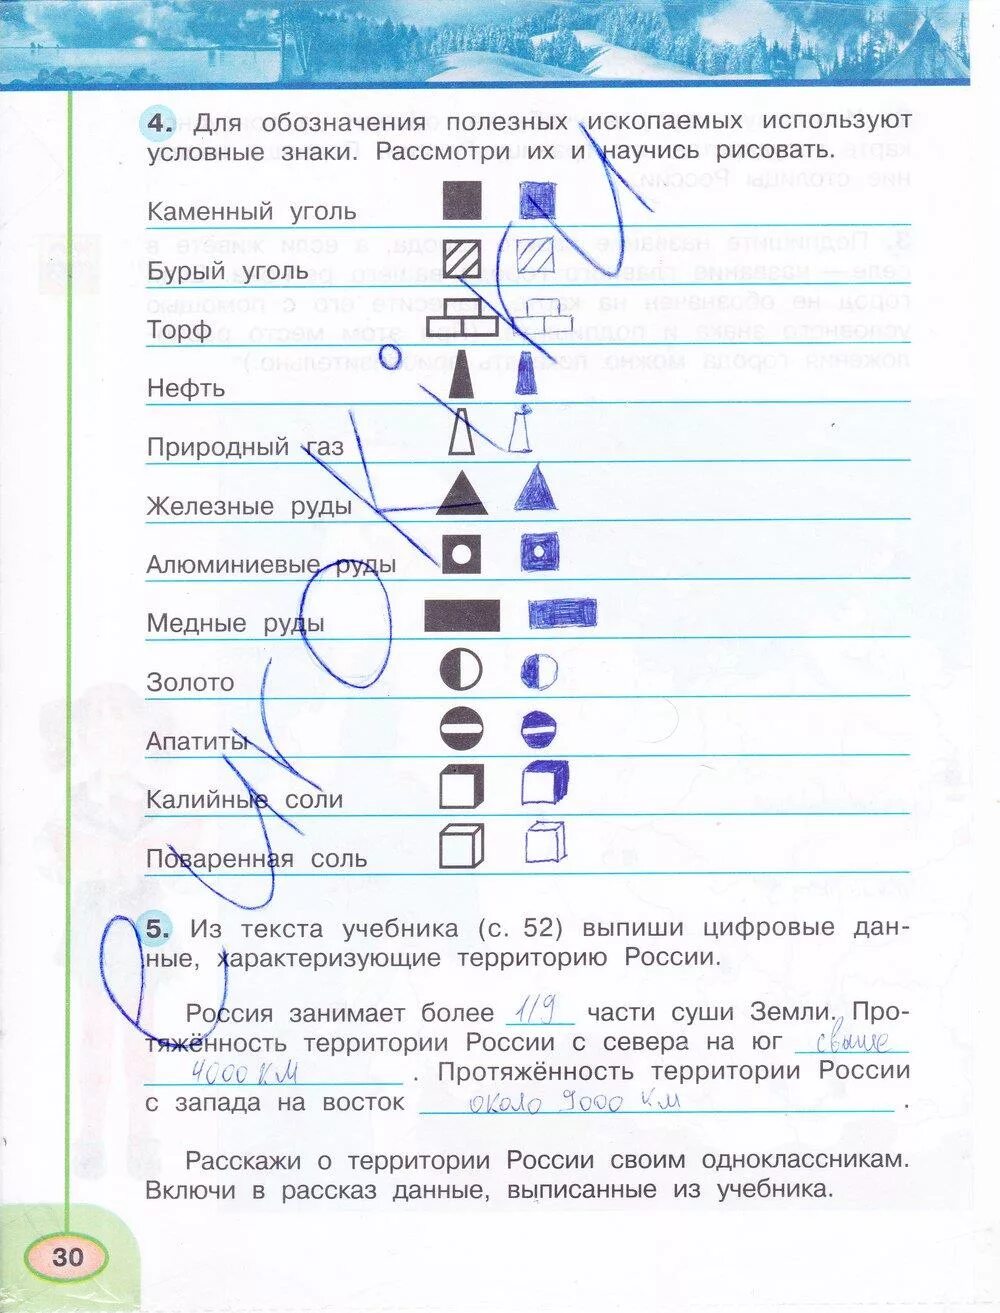 4. Для обозначения полезных ископаемых используют
условные знаки. Рассмотри их и научись рисовать.
Каменный уголь
Бурый уголь
Торф
Нефть
Природный газ
Железные руды
Алюминиевые руды
Медные руды
Золото
Апатиты
Калийные соли
Поваренная соль
5. Из текста учебника (с. 52) выпиши цифровые дан-
ные, характеризующие территорию России.
Россия занимает более 1/9 части суши Земли. Про-
тяжённость территории России с севера на юг свыше
4000 км . Протяжённость территории России
с запада на восток около 9000 км .
Расскажи о территории России своим одноклассникам.
Включи в рассказ данные, выписанные из учебника.
30